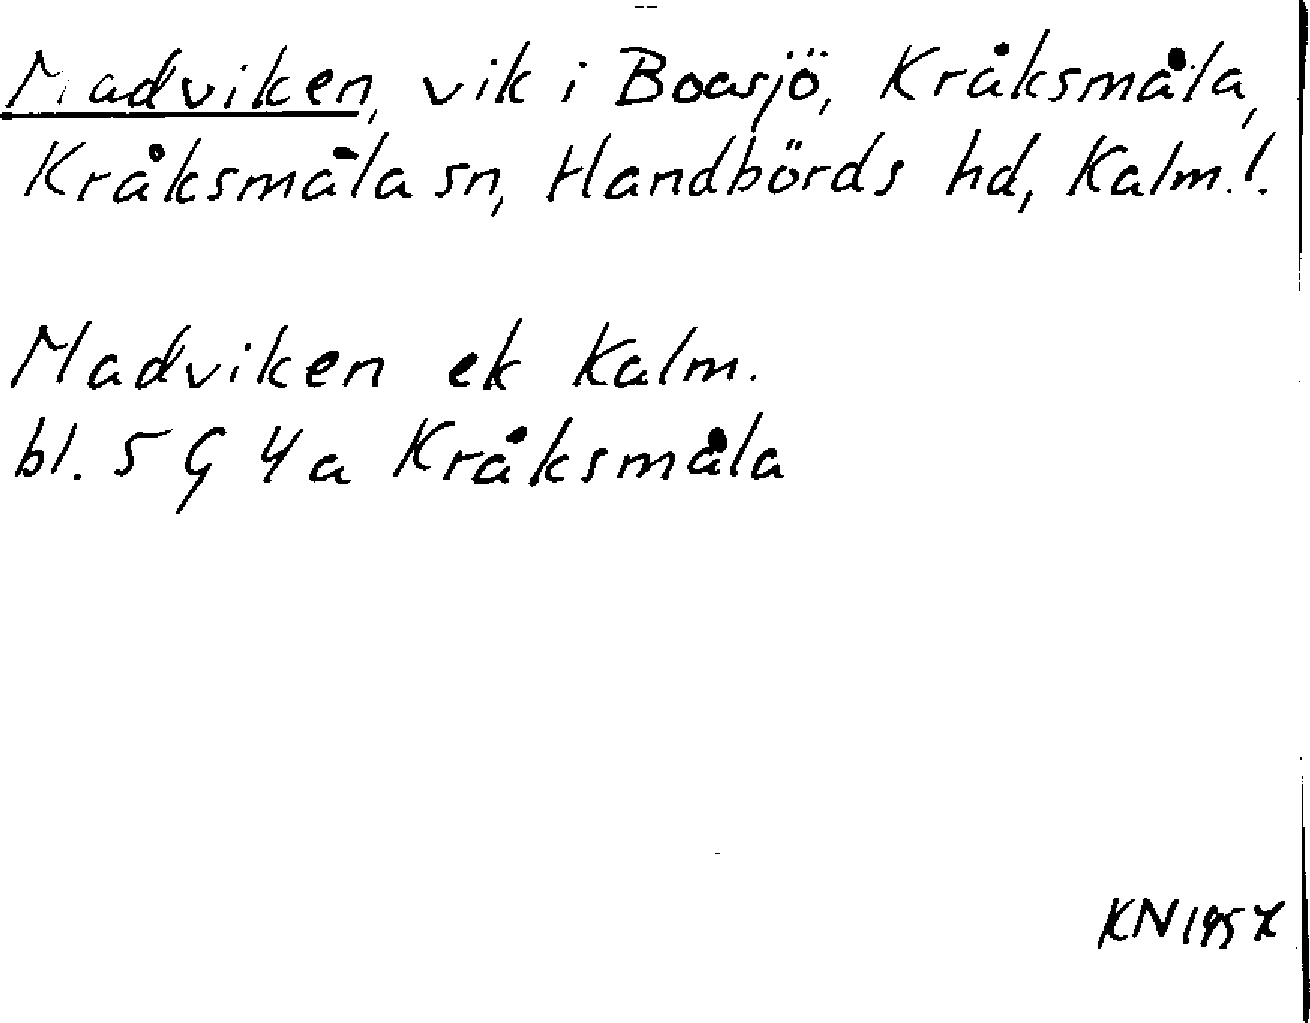 Madviken, vik i Boasjö, Kråksmåla,
Kråksmåla sn, Handbörds hd, Kalm.l.
Madviken ek Kalm.
bl. 5 G 4 a Kråksmåla
KN 1957